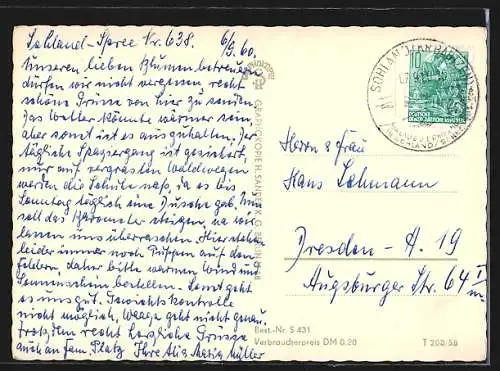 Sohland-Spree Nr. 638. 6/9. 60.
Unseren lieben Blumenbetreuern
dürfen wir nicht vergessen recht
schöne Grüsse von hier zu senden.
Das Wetter könnte wärmer sein,
aber sonst ist es auszuhalten. Der
tägliche Spaziergang ist gesichert,
nur auf vergrasten Waldwegen
werden die Schuhe naß, da es bis
Sonntag täglich eine Dusche gab. Nun
soll das Barometer steigen, na wir
lassen uns überraschen. Hier stehen
leider immer noch Puppen auf den
Feldern, daher bitte warmen Wind und
Sonnenschein bestellen. Sonst geht
es uns gut. Gewichtskontrolle
nicht möglich, Waage geht nicht genau.
Trotzdem recht herzliche Grüsse
auch an Fam. Platz Ihre Maria Müller
GRAPHOKOPIE H. SANDER K. G. BERLIN
Herrn & Frau
Hans Lehmann
Dresden - A. 19
Augsburger Str. 64 II
Best.-Nr. S 431
Verbraucherpreis DM 0.20
T 200/58
10
DEUTSCHE
DEMOKRATISCHE REPUBLIK